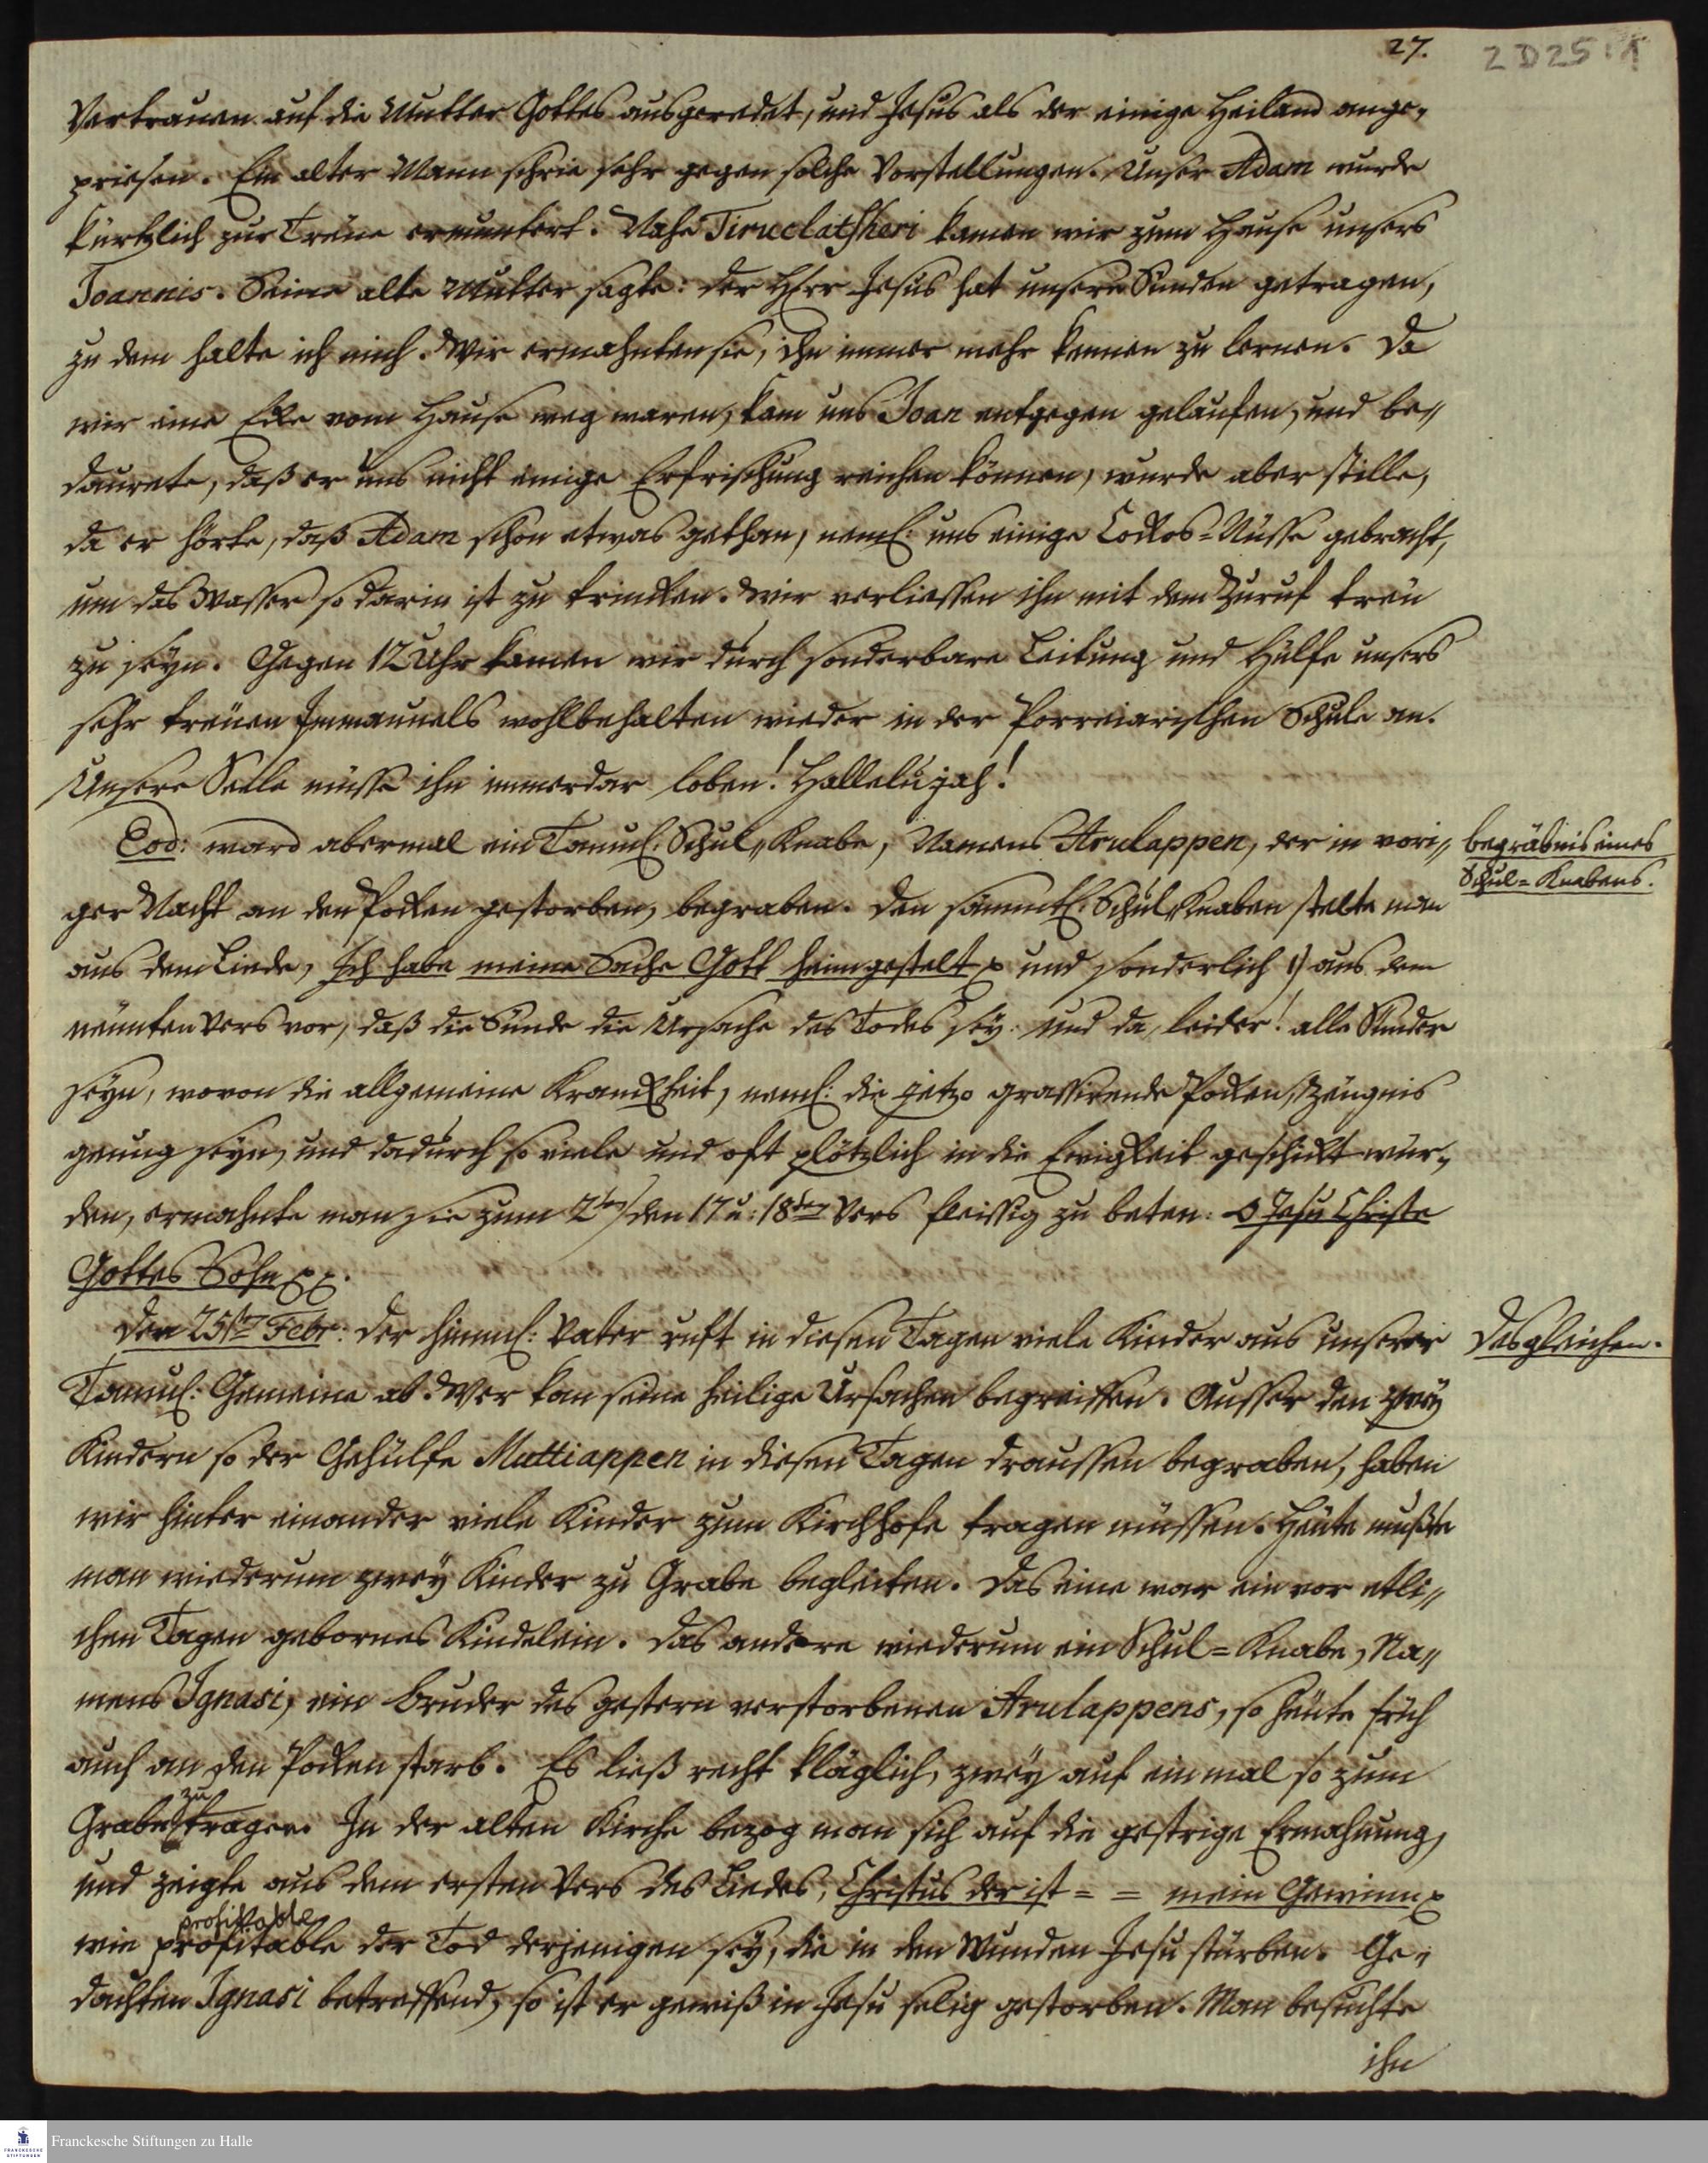 27.
2 D 25 : 1
Vertrauen auf die Mutter Gottes ausgeredet, und Jesus als der einige Heiland ange-
priesen. Ein alter Mann schrie sehr gegen solche Vorstellungen. Unser Adam wurde
kürtzlich zur Treue ermuntert. Nahe Tiruclatscheri kamen wir zum Hause unsers
Joannis. Seine alte Mutter sagte: der Herr Jesus hat unsere Sünden getragen,
zu dem halte ich mich. Wir ermahnten sie, ihn immer mehr kennen zu lernen. Da
wir eine Ecke vom Hause weg waren, kam uns Joan entgegen gelaufen, und be-
daurete, daß er uns nicht einige Erfrischung reichen können, wurde aber stille,
da er hörte, daß Adam schon etwas gethan, neml: uns einige Cockos=Nüsse gebracht,
um das Wasser so darin ist zu trincken. Wir verliessen ihn mit dem Zuruf treu
zu seyn. Gegen 12 Uhr kamen wir durch sonderbare Leitung und Hülfe unsers
sehr treuen Immanuels wohlbehalten wieder in der Porreiarischen Schule an.
Unsere Seele müsse ihn immerdar loben! Hallelujah!
Eod: ward abermal ein Tamul: Schul-Knabe, Namens Arulappen, der in vori-
begräbnis eines
Schul=Knabens.
ger Nacht an den Pocken gestorben, begraben. Den sämmtl: Schul-Knaben stelte man
aus dem Liede, Ich habe meine Sache Gott heimgestelt und sonderlich 1) aus dem
neunten Vers vor, daß die Sünde die Ursache des Todes sey: und da, leider! alle Sünder
seyn, wovon die allgemeine Kranckheit, neml: die jetzo grassirende Pocken, Zeugnis
genug seyn, und dadurch so viele und oft plötzlich in die Ewigkeit geschickt wür-
den, ermahnte man sie zum 2ten) den 17 u: 18ten Vers fleissig zu beten: O Jesu Christe
Gottes Sohn
Den 25ten Febr: Der himml: Vater ruft in diesen Tagen viele Kinder aus unserer
Desgleichen.
Tamul: Gemeine ab. Wer kan seine heilige Ursachen begreiffen. Ausser den zwey
Kindern so der Gehülfe Muttiappen in diesen Tagen draussen begraben, haben
wir hinter einander viele Kinder zum Kirchhofe tragen müssen. Heute mußte
man wiederum zwey Kinder zu Grabe begleiten. Das eine war ein vor etli-
chen Tagen gebornes Kindelein. Das andere wiederum ein Schul=Knabe, Na-
mens Ignasi, ein Bruder des gestern verstorbenen Arulappens, so heute früh
auch an den Pocken starb. Es ließ recht kläglich, zwey auf einmal so zum
zu
Grabe tragen. In der alten Kirche bezog man sich auf die gestrige Ermahnung,
und zeigte aus dem ersten Vers des Liedes, Christus der ist = = mein Gewinn
profitable
wie profitable der Tod derjenigen sey, die in den Wunden Jesu stürben. Ge-
dachten Ignasi betreffend, so ist er gewiß in Jesu selig gestorben. Man besuchte
ihn
FRANCKESCHE STIFTUNGEN
Franckesche Stiftungen zu Halle